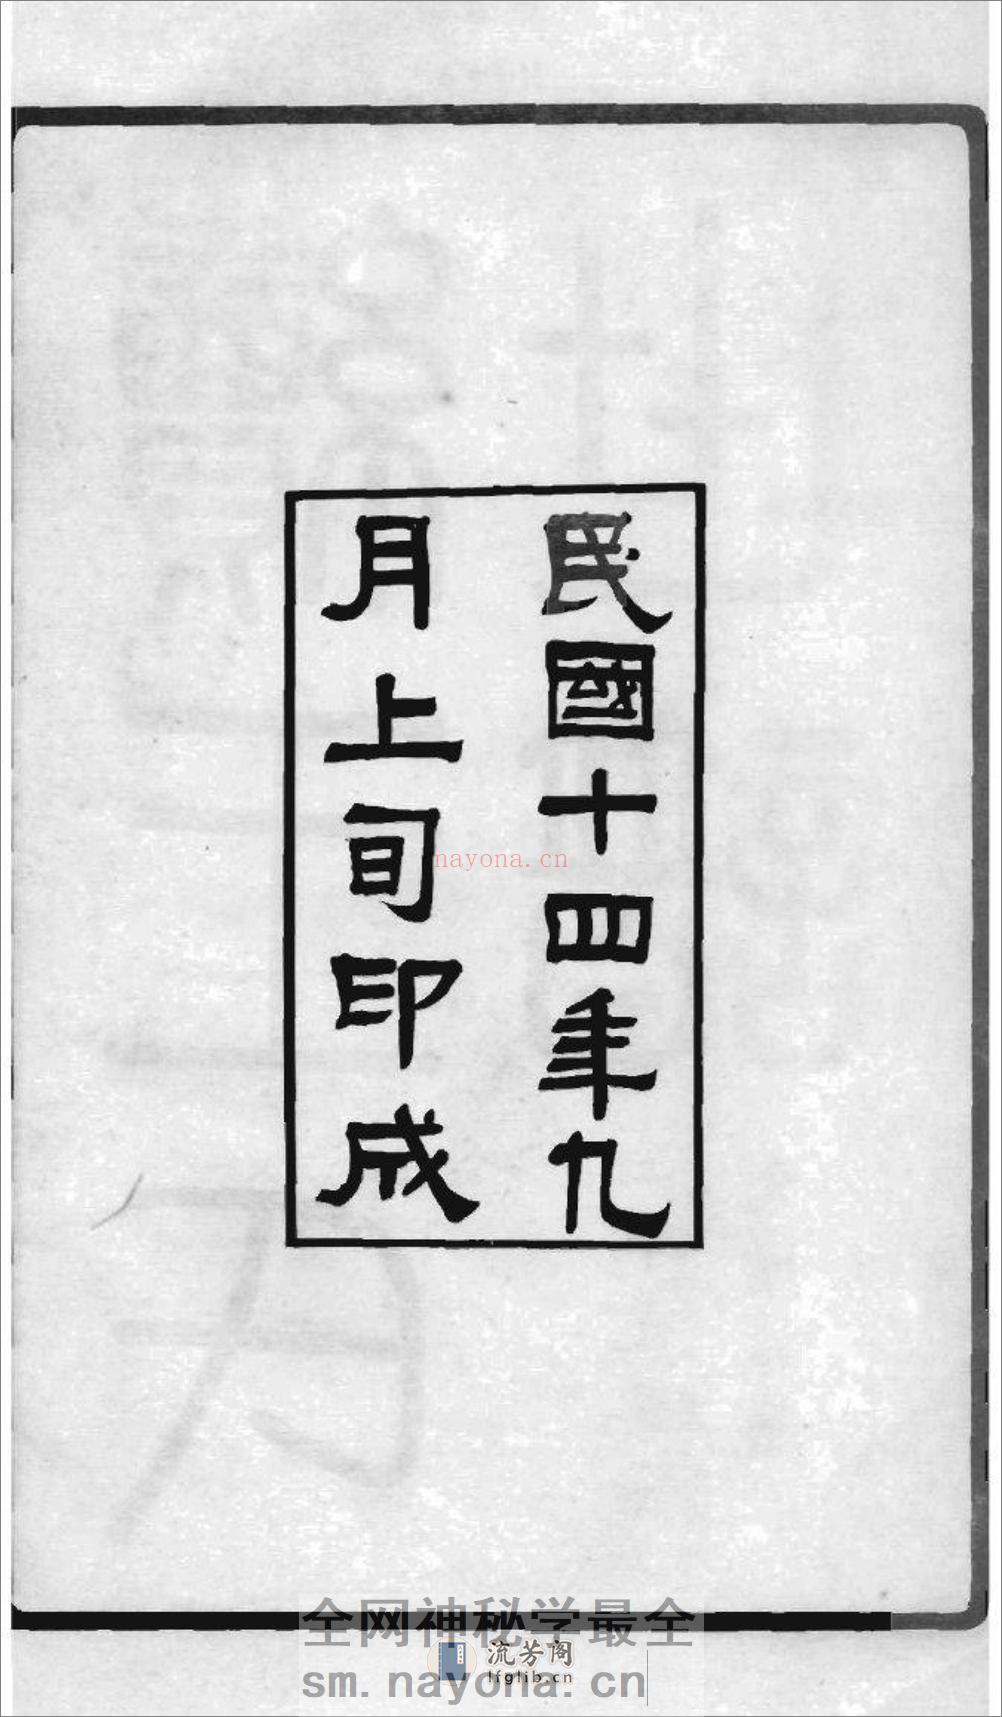 民國十四年九
月上旬印成
nayona.cn
全网神秘学最全
流芳阁
lfglib.cn
sm.nayona.cn